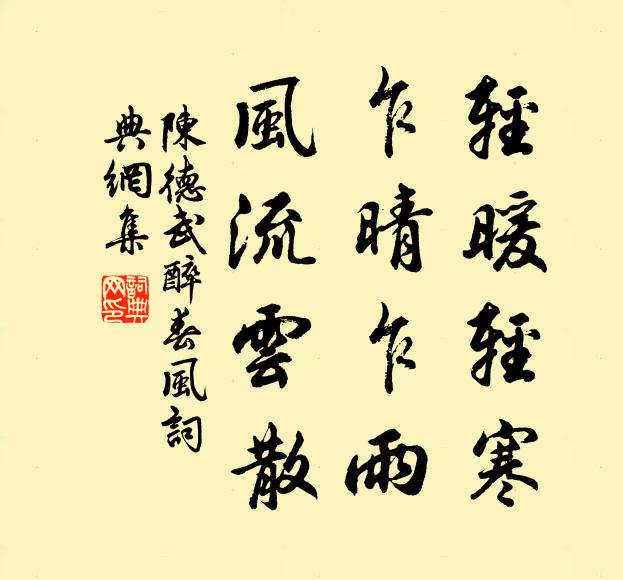 輕暖輕寒
乍晴乍雨
風流雲散
陳德武醉春風詞
典網集
詞典網印